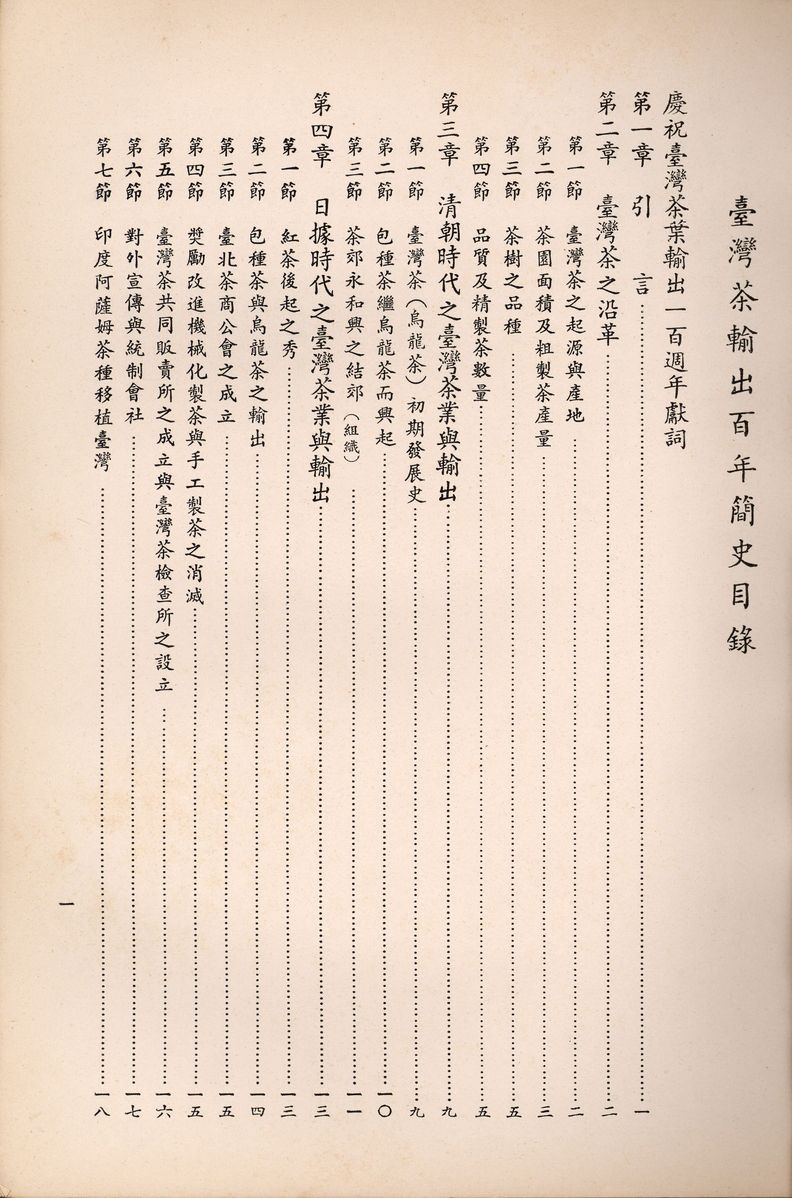 臺灣茶輸出百年簡史目錄
慶祝臺灣茶葉輸出一百週年獻詞
第一章 引言………一
第二章 臺灣茶之沿革………二
第一節 臺灣茶之起源與產地………二
第二節 茶園面積及粗製茶產量………三
第三節 茶樹之品種………五
第四節 品質及精製茶數量………五
第三章 清朝時代之臺灣茶業與輸出………九
第一節 臺灣茶（烏龍茶）初期發展史………九
第二節 包種茶繼烏龍茶而興起………一〇
第三節 茶郊永和興之結郊（組織）………一一
第四章 日據時代之臺灣茶業與輸出………一三
第一節 紅茶後起之秀………一三
第二節 包種茶與烏龍茶之輸出………一四
第三節 臺北茶商公會之成立………一五
第四節 奬勵改進機械化製茶與手工製茶之消滅………一五
第五節 臺灣茶共同販賣所之成立與臺灣茶檢查所之設立………一六
第六節 對外宣傳與統制會社………一七
第七節 印度阿薩姆茶種移植臺灣………一八
一